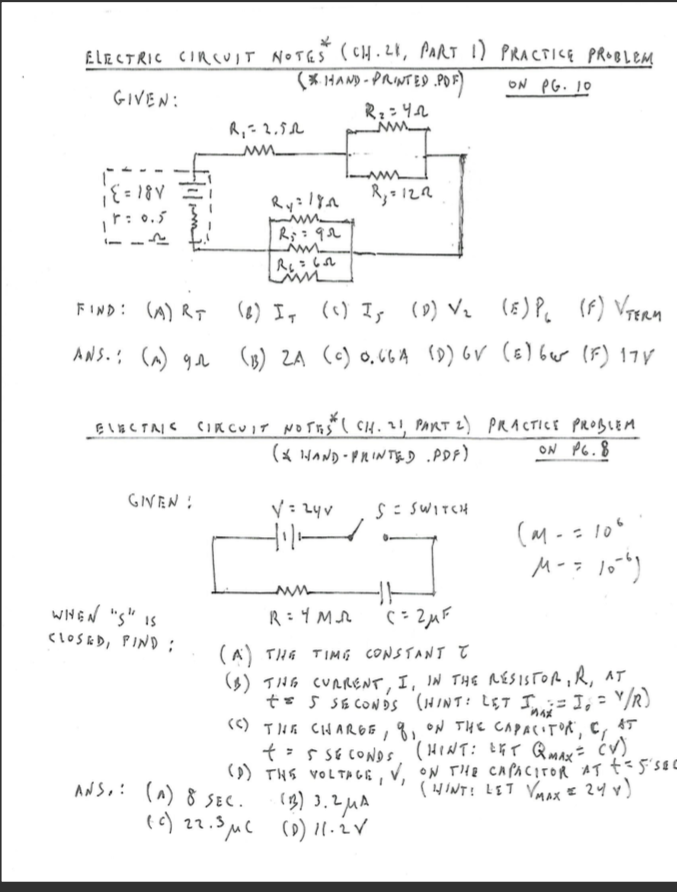 ELECTRIC CIRCUIT NOTES* (CH. 21, PART 1) PRACTICE PROBLEM
(* HAND-PRINTED .PDF) ON PG. 10
GIVEN:
R₂ = 4Ω
R₁ = 2.5Ω
ℰ = 18V
r = 0.5
Ω
R₃ = 12Ω
R₄ = 18Ω
R₅ = 9Ω
R₆ = 6Ω
FIND: (A) R_T (B) I_T (C) I₅ (D) V₂ (E) P₆ (F) V_TERM
ANS.: (A) 9Ω (B) 2A (C) 0.66A (D) 6V (E) 6W (F) 17V
ELECTRIC CIRCUIT NOTES* (CH. 21, PART 2) PRACTICE PROBLEM
(* HAND-PRINTED .PDF) ON PG. 8
GIVEN:
V = 24V S = SWITCH
(M - = 10⁶
μ - = 10⁻⁶)
R = 4 MΩ C = 2μF
WHEN "S" IS
CLOSED, FIND:
(A) THE TIME CONSTANT τ
(B) THE CURRENT, I, IN THE RESISTOR, R, AT
t = 5 SECONDS (HINT: LET I_MAX = I₀ = V/R)
(C) THE CHARGE, q, ON THE CAPACITOR, C, AT
t = 5 SECONDS (HINT: LET Q_MAX = CV)
(D) THE VOLTAGE, V, ON THE CAPACITOR AT t = 5 SEC
(HINT: LET V_MAX = 24V)
ANS.: (A) 8 SEC. (B) 3.2μA
(C) 22.3μC (D) 11.2V